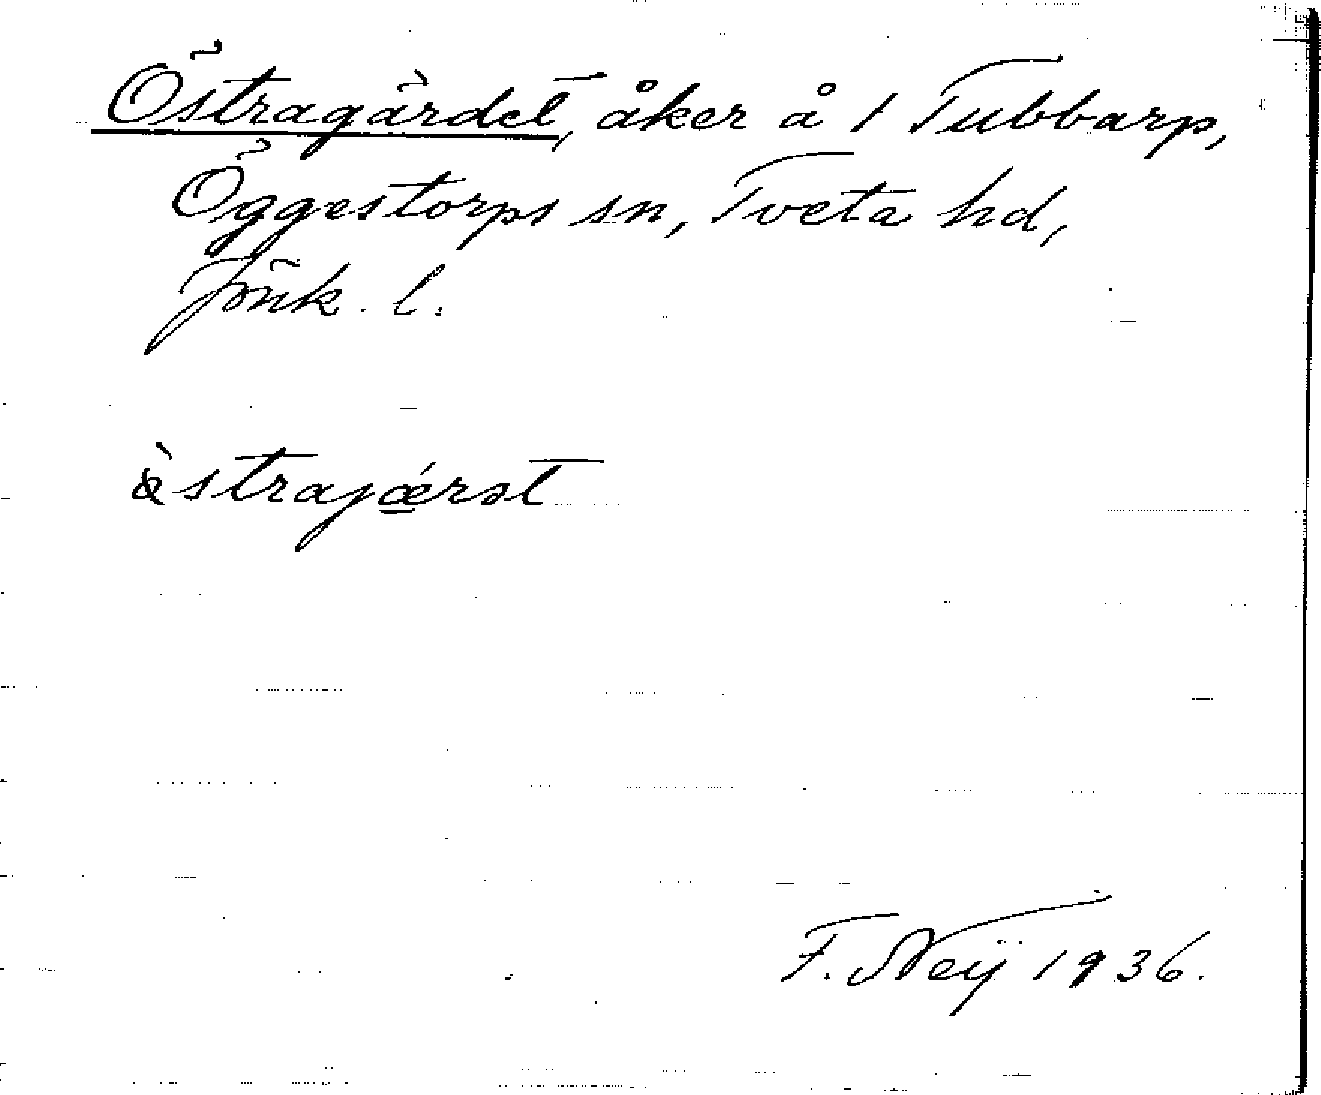 Östragärdet, åker å 1 Tubbarp,
Öggestorps sn, Tveta hd,
Jönk. l.
östrajǽrət
F. Neÿ 1936.